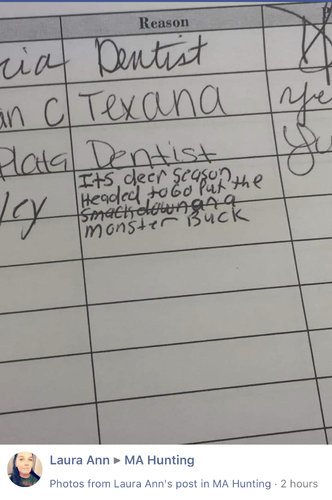 Reason
ria Dentist
an C Texana ye
Plata Dentist
ley Its deer season
Headed to Go Put the
smackdown on a
monster Buck
Laura Ann ▸ MA Hunting
Photos from Laura Ann's post in MA Hunting · 2 hours